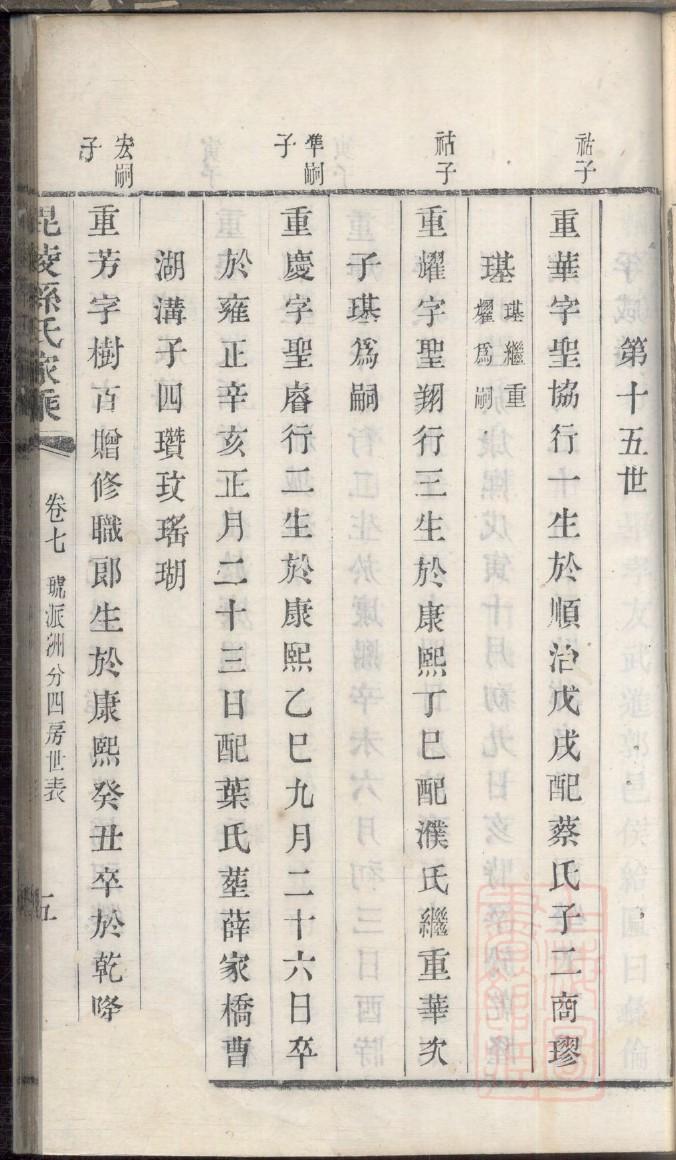 第十五世
祜子
重華字聖協行一生於順治戊戌配蔡氏子二商璆
璂
璂繼重
燿為嗣
祜子
重燿字聖翔行三生於康熙丁巳配濮氏繼重華次
子璂為嗣
準嗣
子
重慶字聖睿行二生於康熙乙巳九月二十六日卒
於雍正辛亥正月二十三日配葉氏塟薛家橋曹
湖溝子四瓚玟瑤瑚
宏嗣
子
重芳字樹百贈修職郎生於康熙癸丑卒於乾隆
毘陵孫氏家乘
卷七
琥派洲分四房世表
五